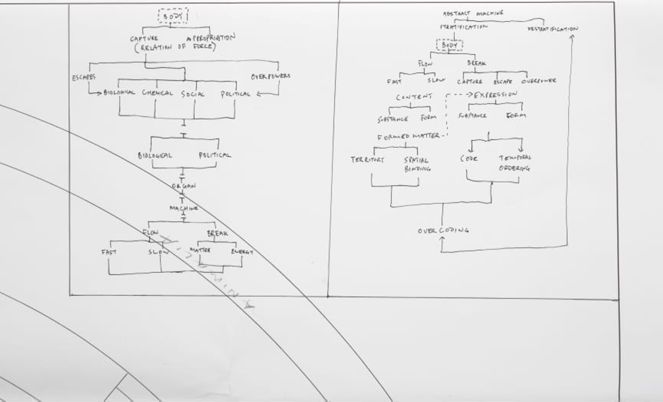 BODY
CAPTURE APPROPRIATION
(RELATION OF FORCE)
ESCAPES OVERPOWERS
BIOLOGICAL CHEMICAL SOCIAL POLITICAL
BIOLOGICAL POLITICAL
ORGAN
MACHINE
FLOW BREAK
FAST SLOW MATTER ENERGY
ABSTRACT MACHINE
STRATIFICATION DESTRATIFICATION
BODY
FLOW BREAK
FAST SLOW CAPTURE ESCAPE OVERPOWER
CONTENT EXPRESSION
SUBSTANCE FORM SUBSTANCE FORM
FORMED MATTER
TERRITORY SPATIAL BINDING CODE TEMPORAL ORDERING
OVERCODING